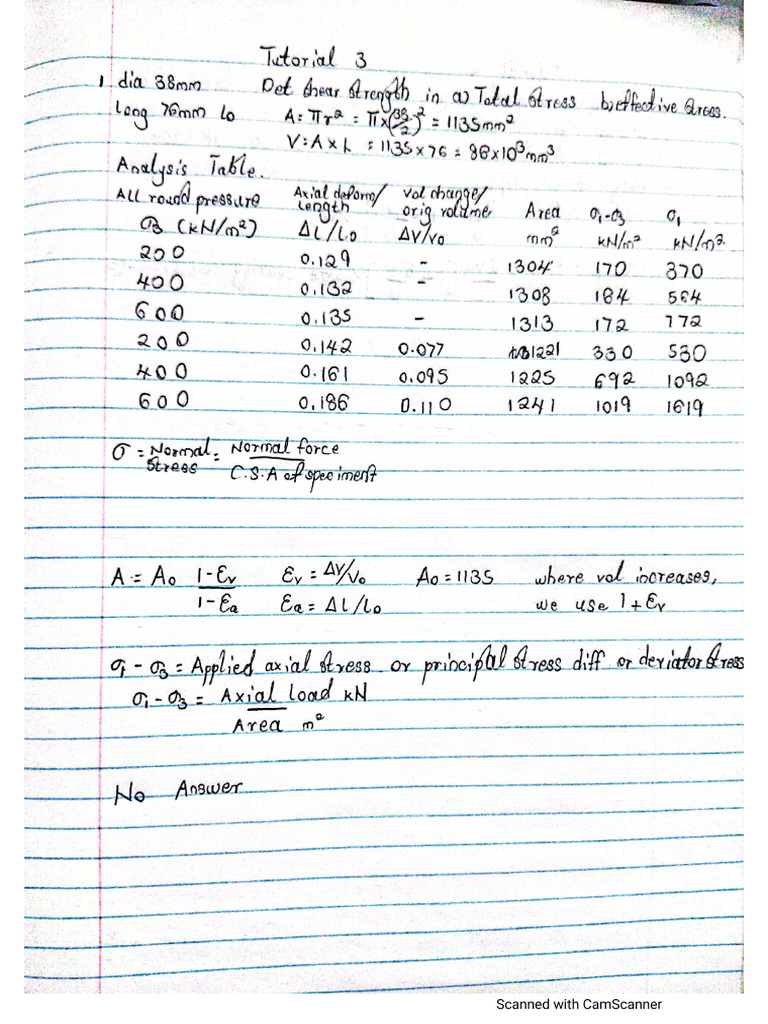 Tutorial 3
1 dia 38mm Det shear strength in a) Total stress b) effective stress.
Long 76mm Lo A = πr² = π×(38/2)² = 1135mm²
V = A × L = 1135 × 76 = 86×10³mm³
Analysis Table.
All round pressure Axial deform/length Vol change/orig volume Area σ₁-σ₃ σ₁
σ₃ (kN/m²) Δl/lo ΔV/Vo mm² kN/m² kN/m²
200 0.129 - 1304 170 370
400 0.132 - 1308 164 564
600 0.135 - 1313 172 772
200 0.142 0.077 1221 330 530
400 0.161 0.095 1225 692 1092
600 0.186 0.110 1241 1019 1619
σ = Normal stress = Normal force / C.S.A of speciment
A = Ao (1-Ɛv)/(1-Ɛa) Ɛv = ΔV/Vo Ao = 1135 where vol increases,
Ɛa = Δl/lo we use 1+Ɛv
σ₁ - σ₃ = Applied axial stress or principal stress diff or deviator stress
σ₁ - σ₃ = Axial Load kN
Area m²
No Answer
Scanned with CamScanner